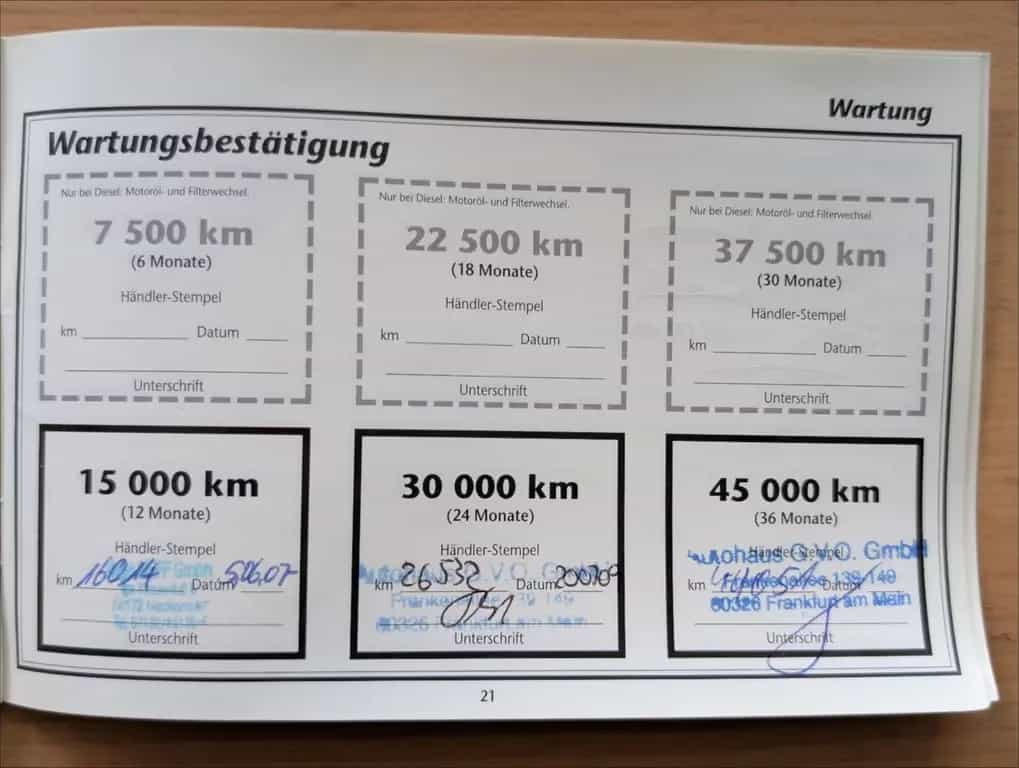 Wartung
Wartungsbestätigung
Nur bei Diesel: Motoröl- und Filterwechsel.
7 500 km
(6 Monate)
Händler-Stempel
km Datum
Unterschrift
Nur bei Diesel: Motoröl- und Filterwechsel.
22 500 km
(18 Monate)
Händler-Stempel
km Datum
Unterschrift
Nur bei Diesel: Motoröl- und Filterwechsel.
37 500 km
(30 Monate)
Händler-Stempel
km Datum
Unterschrift
15 000 km
(12 Monate)
Händler-Stempel
km 16014 Datum
Unterschrift
30 000 km
(24 Monate)
Händler-Stempel
Autohaus G.V.O. GmbH
km 26532 Datum
Frankenallee 139-149
60326 Frankfurt am Main
Unterschrift
45 000 km
(36 Monate)
Händler-Stempel
Autohaus G.V.O. GmbH
km Datum
Frankenallee 139-149
60326 Frankfurt am Main
Unterschrift
21